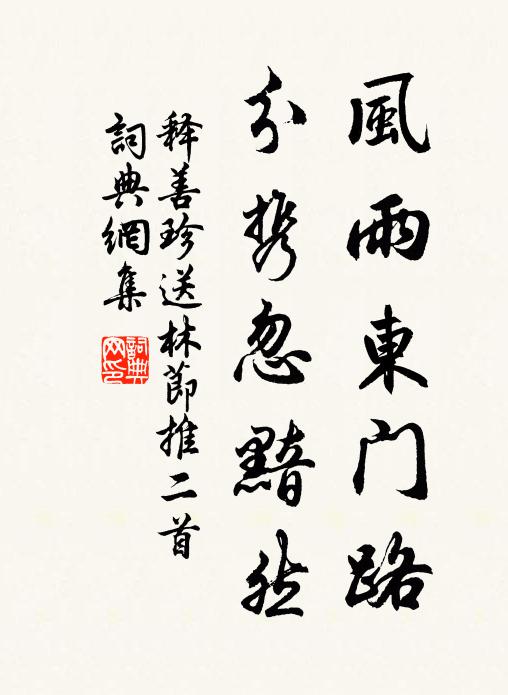 風雨東门路
分携忽黯然
释善珍送林節推二首
詞典網集
詞典
网印